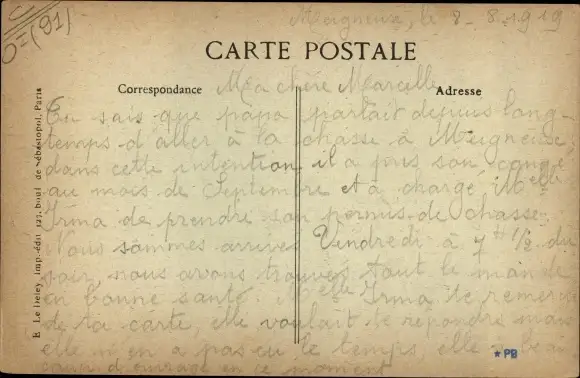 O=(91)
Meigneux, le 8-8-1919
CARTE POSTALE
Correspondance
Adresse
Ma chère Marcelle
Tu sais que papa parlait depuis long-
temps d'aller à la chasse à Meigneux,
dans cette intention il a pris son congé
au mois de Septembre et a chargé Melle
Irma de prendre son permis de chasse.
Nous sommes arrivés Vendredi à 7h 1/2 du
soir, nous avons trouvé tout le monde
en bonne santé. Melle Irma te remercie
de ta carte, elle voulait te répondre mais
elle n'en a pas eu le temps, elle a beau
coup d'ouvrage en ce moment
*PB
E. Le Deley, imp.-édit. 127, boul. de Sébastopol, Paris